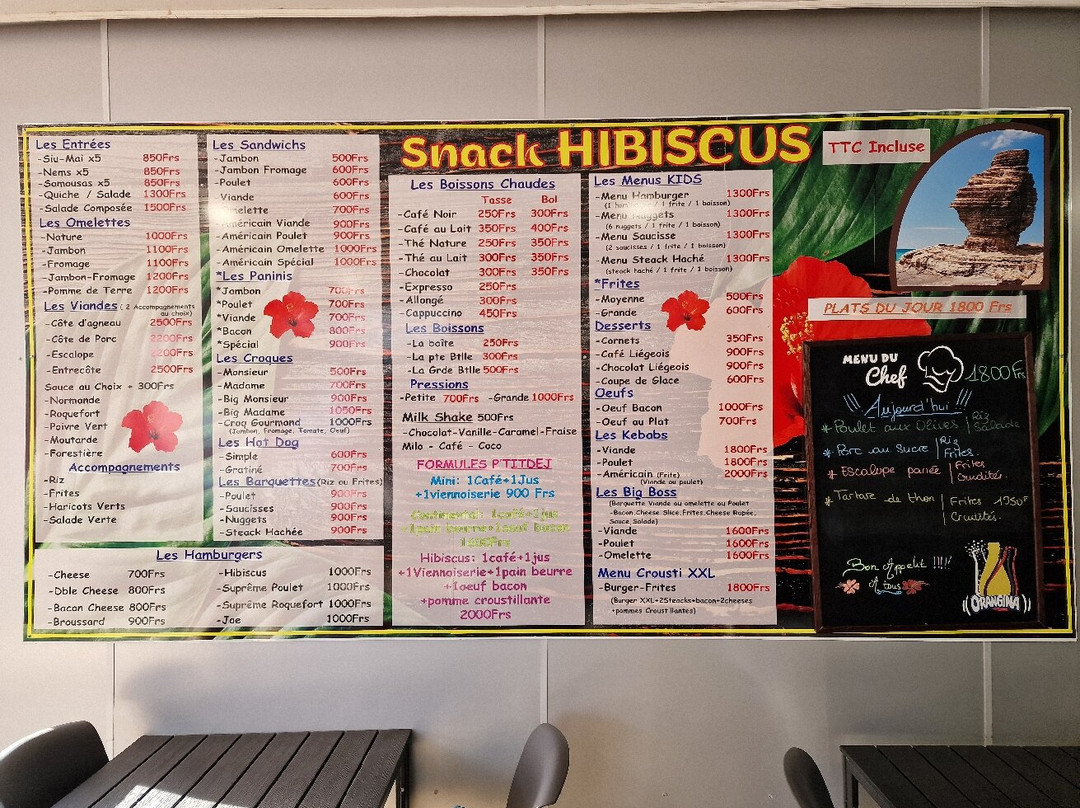 Snack HIBISCUS
TTC Incluse
Les Entrées
-Siu-Mai x5 850Frs
-Nems x5 850Frs
-Samousas x5 850Frs
-Quiche / Salade 1300Frs
-Salade Composée 1500Frs
Les Omelettes
-Nature 1000Frs
-Jambon 1100Frs
-Fromage 1100Frs
-Jambon-Fromage 1200Frs
-Pomme de Terre 1200Frs
Les Viandes ( 2 Accompagnements
au choix)
-Côte d'agneau 2500Frs
-Côte de Porc 2200Frs
-Escalope 2200Frs
-Entrecôte 2500Frs
Sauce au Choix + 300Frs
-Normande
-Roquefort
-Poivre Vert
-Moutarde
-Forestière
Accompagnements
-Riz
-Frites
-Haricots Verts
-Salade Verte
Les Sandwichs
-Jambon 500Frs
-Jambon Fromage 600Frs
-Poulet 600Frs
-Viande 600Frs
700Frs
-Américain Viande 900Frs
-Américain Poulet 900Frs
-Américain Omelette 1000Frs
-Américain Spécial 1000Frs
*Les Paninis
*Jambon 700Frs
*Poulet 700Frs
*Viande 700Frs
*Bacon 800Frs
*Spécial 900Frs
Les Croques
-Monsieur 500Frs
-Madame 700Frs
-Big Monsieur 900Frs
-Big Madame 1050Frs
-Croq Gourmand 1000Frs
(Jambon, Fromage, Tomate, Oeuf)
Les Hot Dog
-Simple 600Frs
-Gratiné 700Frs
Les Barquettes(Riz ou Frites)
-Poulet 900Frs
-Saucisses 900Frs
-Nuggets 900Frs
-Steack Hachée 900Frs
Les Hamburgers
-Cheese 700Frs
-Dble Cheese 800Frs
-Bacon Cheese 800Frs
-Broussard 900Frs
-Hibiscus 1000Frs
-Suprême Poulet 1000Frs
-Suprême Roquefort 1000Frs
-Joe 1000Frs
Les Boissons Chaudes
Tasse Bol
-Café Noir 250Frs 300Frs
-Café au Lait 350Frs 400Frs
-Thé Nature 250Frs 350Frs
-Thé au Lait 300Frs 350Frs
-Chocolat 300Frs 350Frs
-Expresso 250Frs
-Allongé 300Frs
-Cappuccino 450Frs
Les Boissons
-La boîte 250Frs
-La pte Btlle 300Frs
-La Grde Btlle 500Frs
Pressions
-Petite 700Frs -Grande 1000Frs
Milk Shake 500Frs
-Chocolat-Vanille-Caramel-Fraise
Milo - Café - Coco
FORMULES P'TITDEJ
Mini: 1Café+1Jus
+1viennoiserie 900 Frs
Continental: 1café+1jus
Hibiscus: 1café+1jus
+1Viennoiserie+1pain beurre
+1oeuf bacon
+pomme croustillante
2000Frs
Les Menus KIDS
-Menu Hamburger 1300Frs
/ 1 frite / 1 boisson)
-Menu Nuggets 1300Frs
(6 nuggets / 1 frite / 1 boisson)
-Menu Saucisse 1300Frs
(2 saucisses / 1 frite / 1 boisson)
-Menu Steack Haché 1300Frs
(steack haché / 1 frite / 1 boisson)
*Frites
-Moyenne 500Frs
-Grande 600Frs
Desserts
-Cornets 350Frs
-Café Liégeois 900Frs
-Chocolat Liégeois 900Frs
-Coupe de Glace 600Frs
Oeufs
-Oeuf Bacon 1000Frs
-Oeuf au Plat 700Frs
Les Kebabs
-Viande 1800Frs
-Poulet 1800Frs
-Américain (Frite) 2000Frs
(Viande ou poulet)
Les Big Boss
(Barquette Viande ou omelette ou Poulet
-Bacon,Cheese Slice,Frites,Cheese Rapée,
Sauce,Salade)
-Viande 1600Frs
-Poulet 1600Frs
-Omelette 1600Frs
Menu Crousti XXL
-Burger-Frites 1800Frs
(Burger XXL+2Steacks+bacon+2cheeses
+pommes Croustillantes)
PLATS DU JOUR 1800 Frs
MENU DU
Chef
1800Frs
!! Aujourd'hui !!
* Poulet aux Olives | Riz
Salade
* Porc au Sucre | Riz
Frites.
* Escalope panée | Frites
Crudités.
* Tartare de thon | Frites 1950F
Crudités.
Bon Appétit !!!!
à tous
ORANGINA